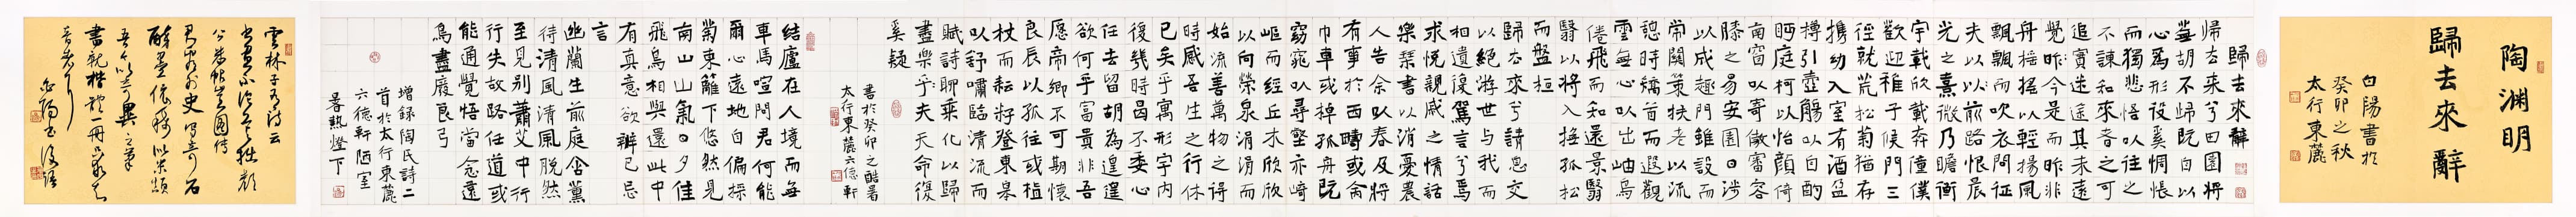 陶渊明
歸去來辭
白陽書於
癸卯之秋
太行東麓
歸去來辭
歸去来兮田園將
蕪胡不歸既自以
心為形役奚惆悵
而獨悲悟以往之
不諫知來者之可
追實迷途其未遠
覺昨今是而昨非
舟摇摇以輕揚風
飄飄而吹衣問征
夫以以前路恨晨
光之熹微乃瞻衡
宇載欣載奔僮僕
歡迎稚子候門三
徑就荒松菊猶存
攜幼入室有酒盈
樽引壺觴以自酌
眄庭柯以怡顏倚
南窗以寄傲審容
膝之易安園日涉
以成趣門雖設而
常關策扶老以流
憩時矯首而遐觀
雲無心以出岫鳥
倦飛而知還景翳
翳以將入撫孤松
而盤桓
歸去來兮請息交
以絕游世与我而
相遺復駕言兮焉
求悅親戚之情話
樂琴書以消憂農
人告余以春及將
有事於西疇或命
巾車或棹孤舟既
窈窕以尋壑亦崎
嶇而經丘木欣欣
以向榮泉涓涓而
始流善萬物之得
時感吾生之行休
已矣乎寓形宇内
復幾時曷不委心
任去留胡為遑遑
欲何乎富貴非吾
愿帝鄉不可期懷
良辰以孤往或植
杖而耘耔登東皋
以舒嘯臨清流而
賦詩聊乘化以歸
盡樂乎夫天命復
奚疑
書於癸卯之酷暑
太行東麓六德軒
結廬在人境而無
車馬喧問君何能
爾心遠地自偏採
菊東籬下悠然見
南山山氣日夕佳
飛鳥相與還此中
有真意欲辨已忘
言
幽蘭生前庭含薰
待清風清風脱然
至見别蕭艾中行
行失故路任道或
能通覺悟當念遠
鳥盡廢良弓
增録陶氏詩二
首於太行東麓
六德軒陋室
暑熱燈下